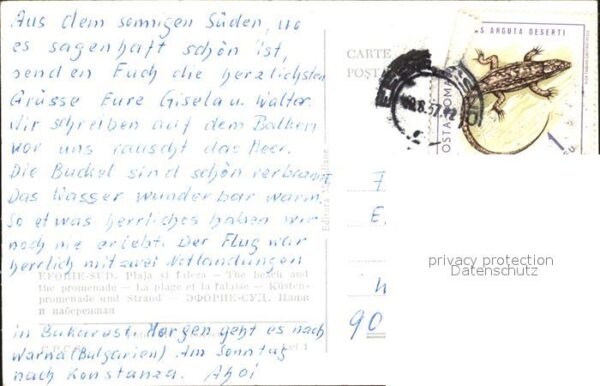 Aus dem sonnigen Süden, wo
es sagenhaft schön ist,
senden Euch die herzlichsten
Grüsse Eure Gisela u. Walter.
Wir schreiben auf dem Balkon
vor uns rauscht das Meer.
Die Buckel sind schön verbrannt
Das Wasser wunderbar warm.
So etwas herrliches haben wir
noch nie erlebt. Der Flug war
herrlich mit zwei Notlandungen
EFORIE-SUD. Plaja si faleza — The beach and
the promenade — La plage et la falaise — Küsten-
promenade und Strand — ЭФОРИЕ-СУД. Пляж
и набережная
in Bukarest. Morgen geht es nach
Warna (Bulgarien) Am Sonntag
nach Konstanza. Ahoi
Editura
CARTE
POȘTA
AS ARGUTA DESERTI
POSTA ROMA
privacy protection
Datenschutz
90